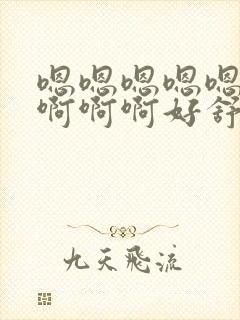 嗯嗯嗯嗯嗯
啊啊啊好舒
九天飞流